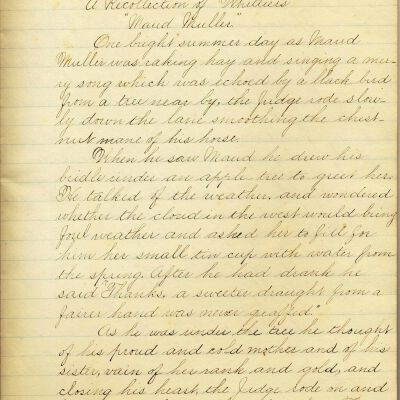 A Recollection of Whittier's
"Maud Muller"
One bright summer day as Maud
Muller was raking hay and singing a mer-
ry song which was echoed by a black bird
from a tree near by, the Judge rode slow-
ly down the lane smoothing the chest-
nut mane of his horse.
When he saw Maud he drew his
bridle under an apple tree to greet her.
He talked of the weather, and wondered
whether the cloud in the west would bring
foul weather and asked her to fill for
him her small tin cup with water from
the spring. After he had drank he
said "Thanks, a sweeter draught from a
fairer hand was never quaffed."
As he was under the tree he thought
of his proud and cold mother and of his
sister, vain of her rank and gold, and
closing his heart, the Judge rode on and